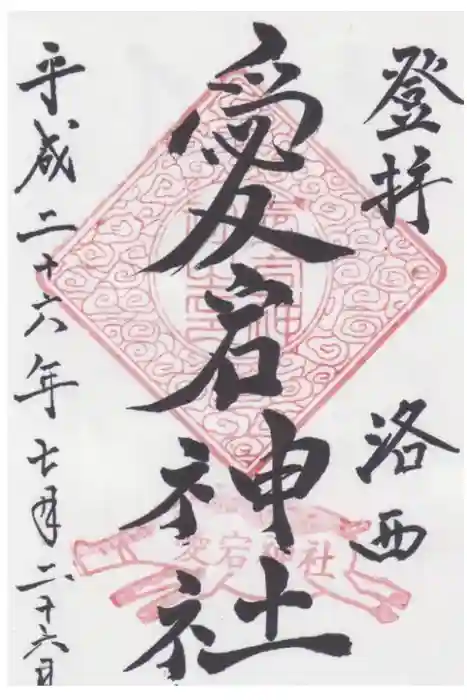 登拝 洛西
愛宕神社
平成二十六年七月二十六日
愛宕神社